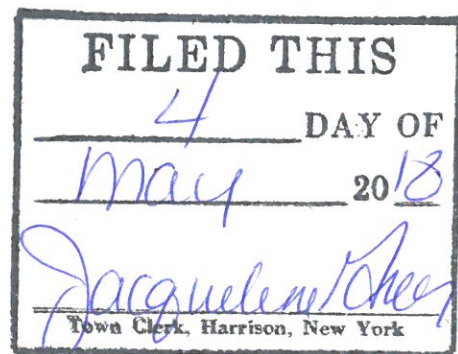 FILED THIS
4 DAY OF
May 2018
Jacqueline
Town Clerk, Harrison, New York